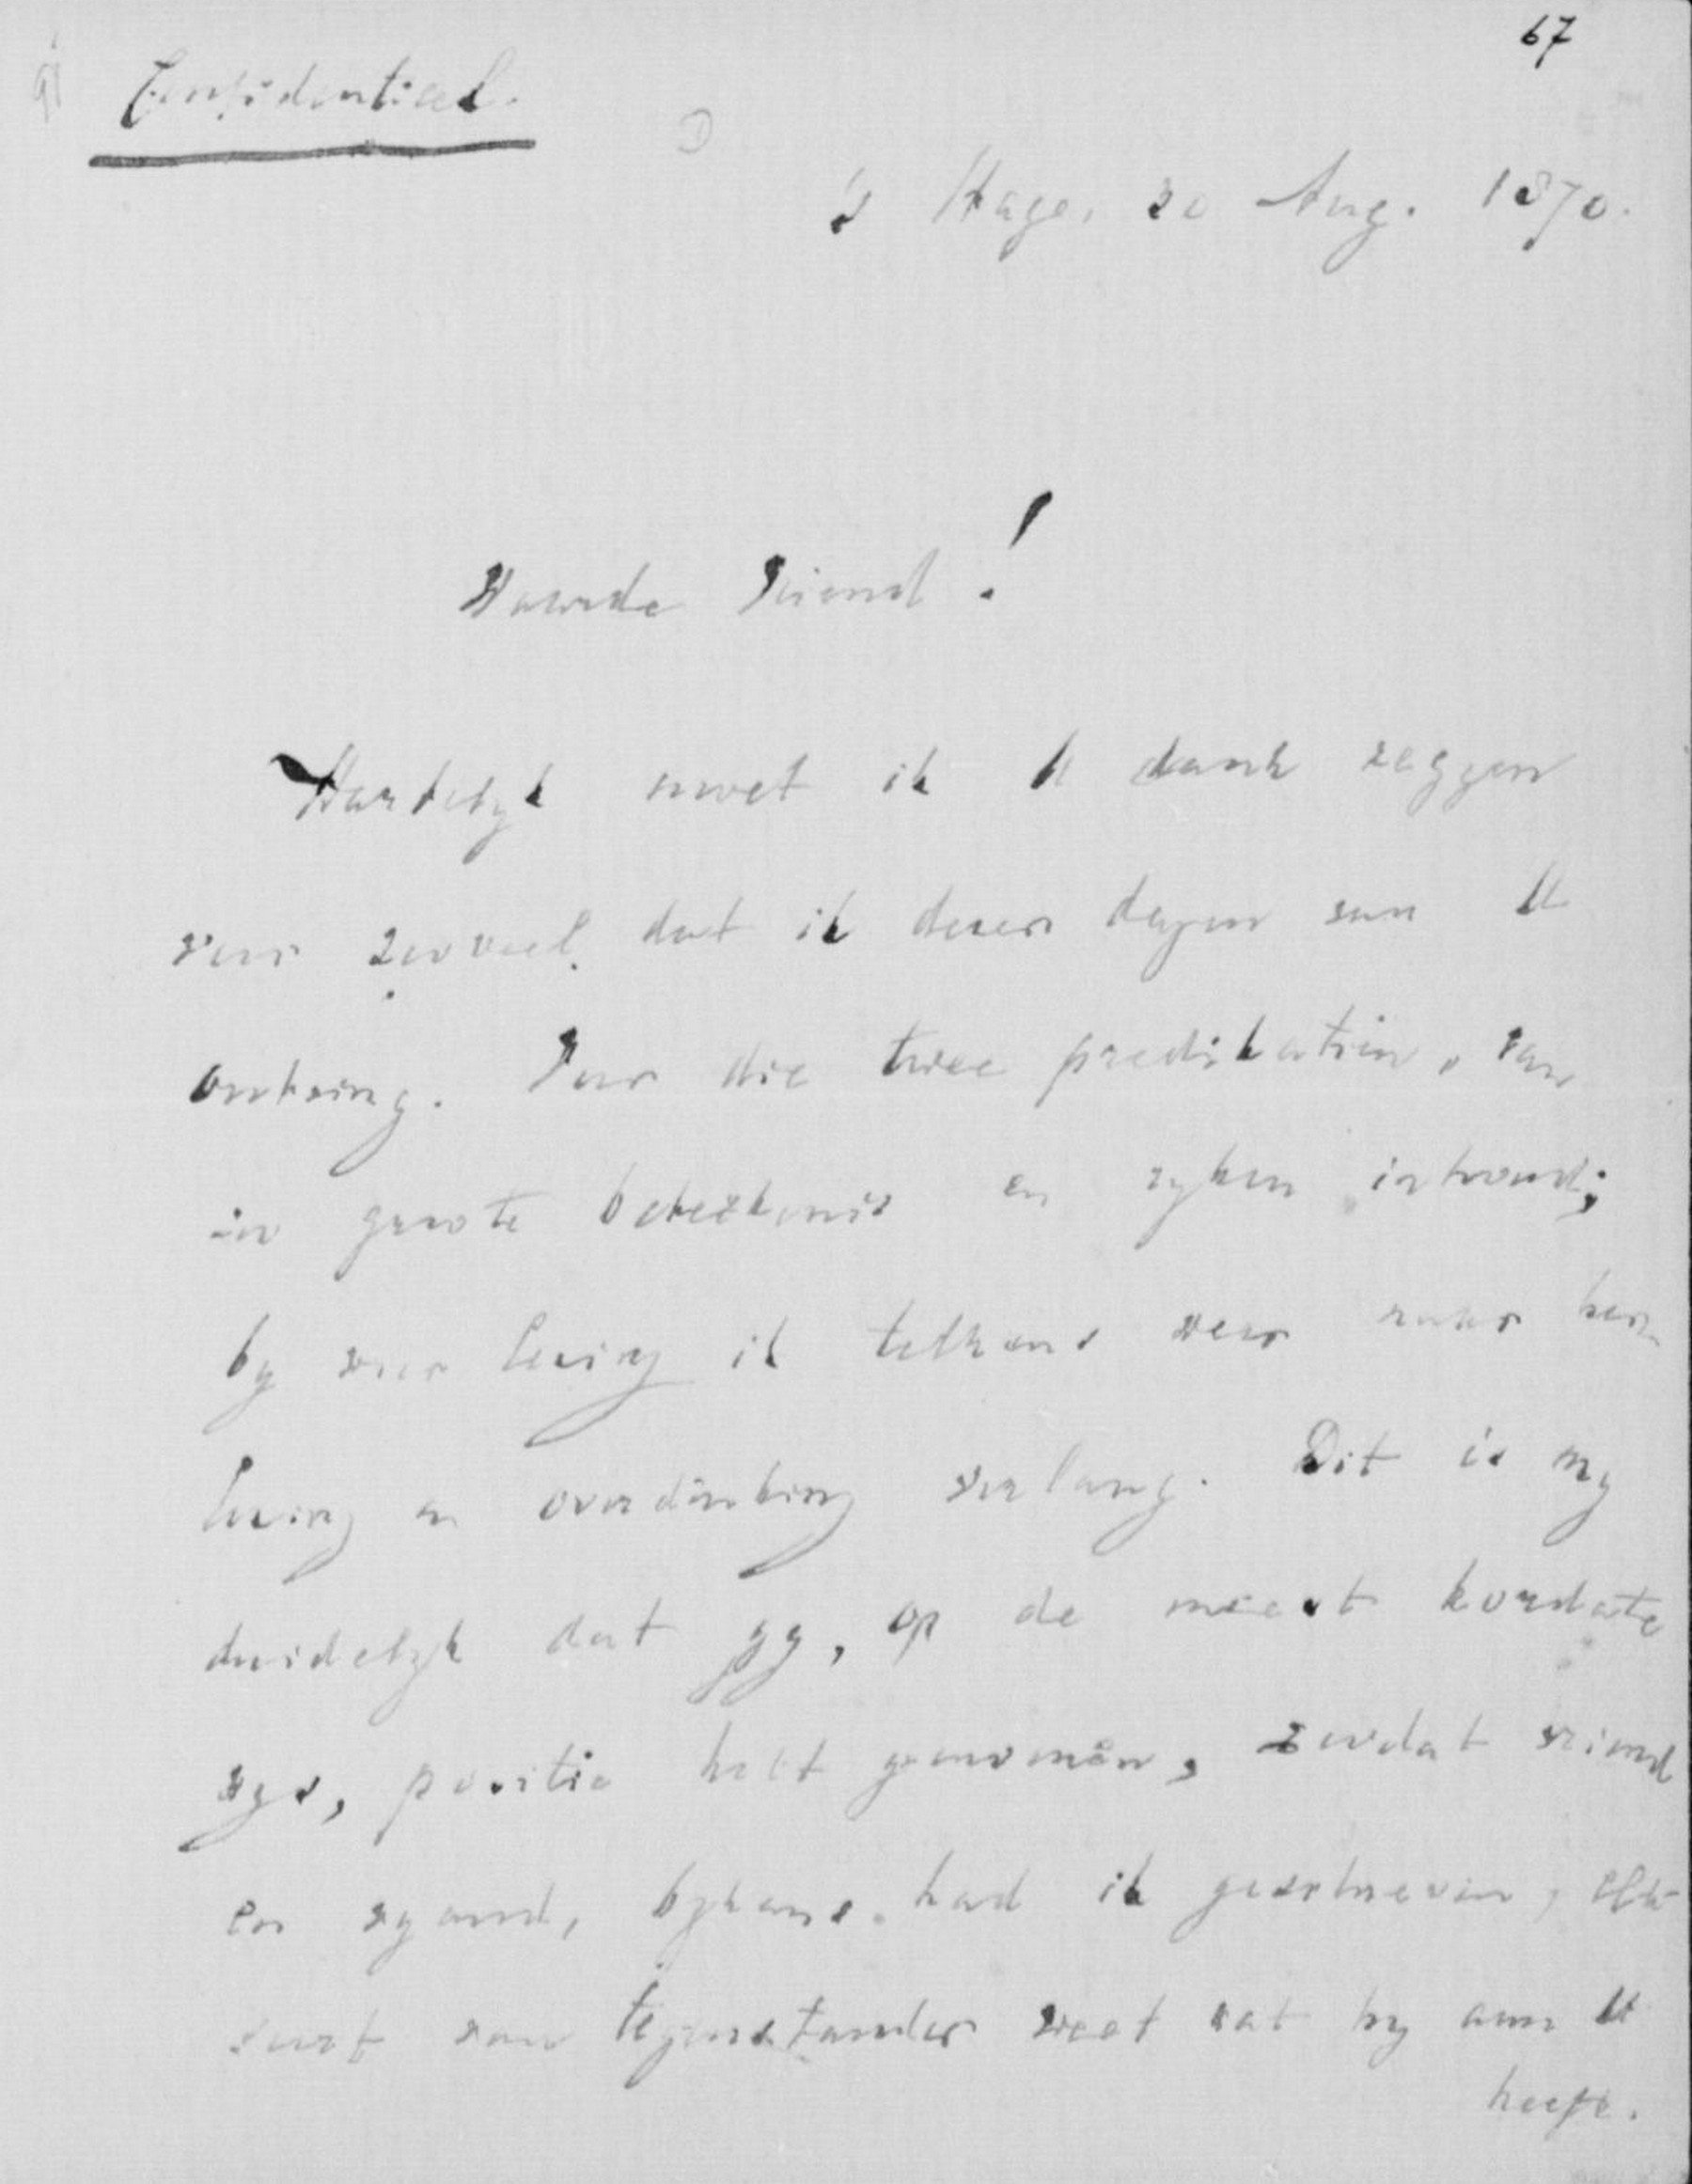 67
Confidentieel.
's Hage, 20 Aug. 1870.
Waarde Vriend!
Hartelyk moet ik U dank zeggen
voor zooveel dat ik dezer dagen van U
ontving. Voor die twee predikatiën, van
groote beteekenis en ryken inhoud;
by wier lezing ik telkens weer naar her-
lezing en overdenking verlang. Dit is my
duidelyk dat gy, op de meest kordate
wys, positie hebt genomen, zoodat vriend
en vyand, bykans had ik geschreven, elke
soort van tegenstander weet wat hy aan U
heeft.